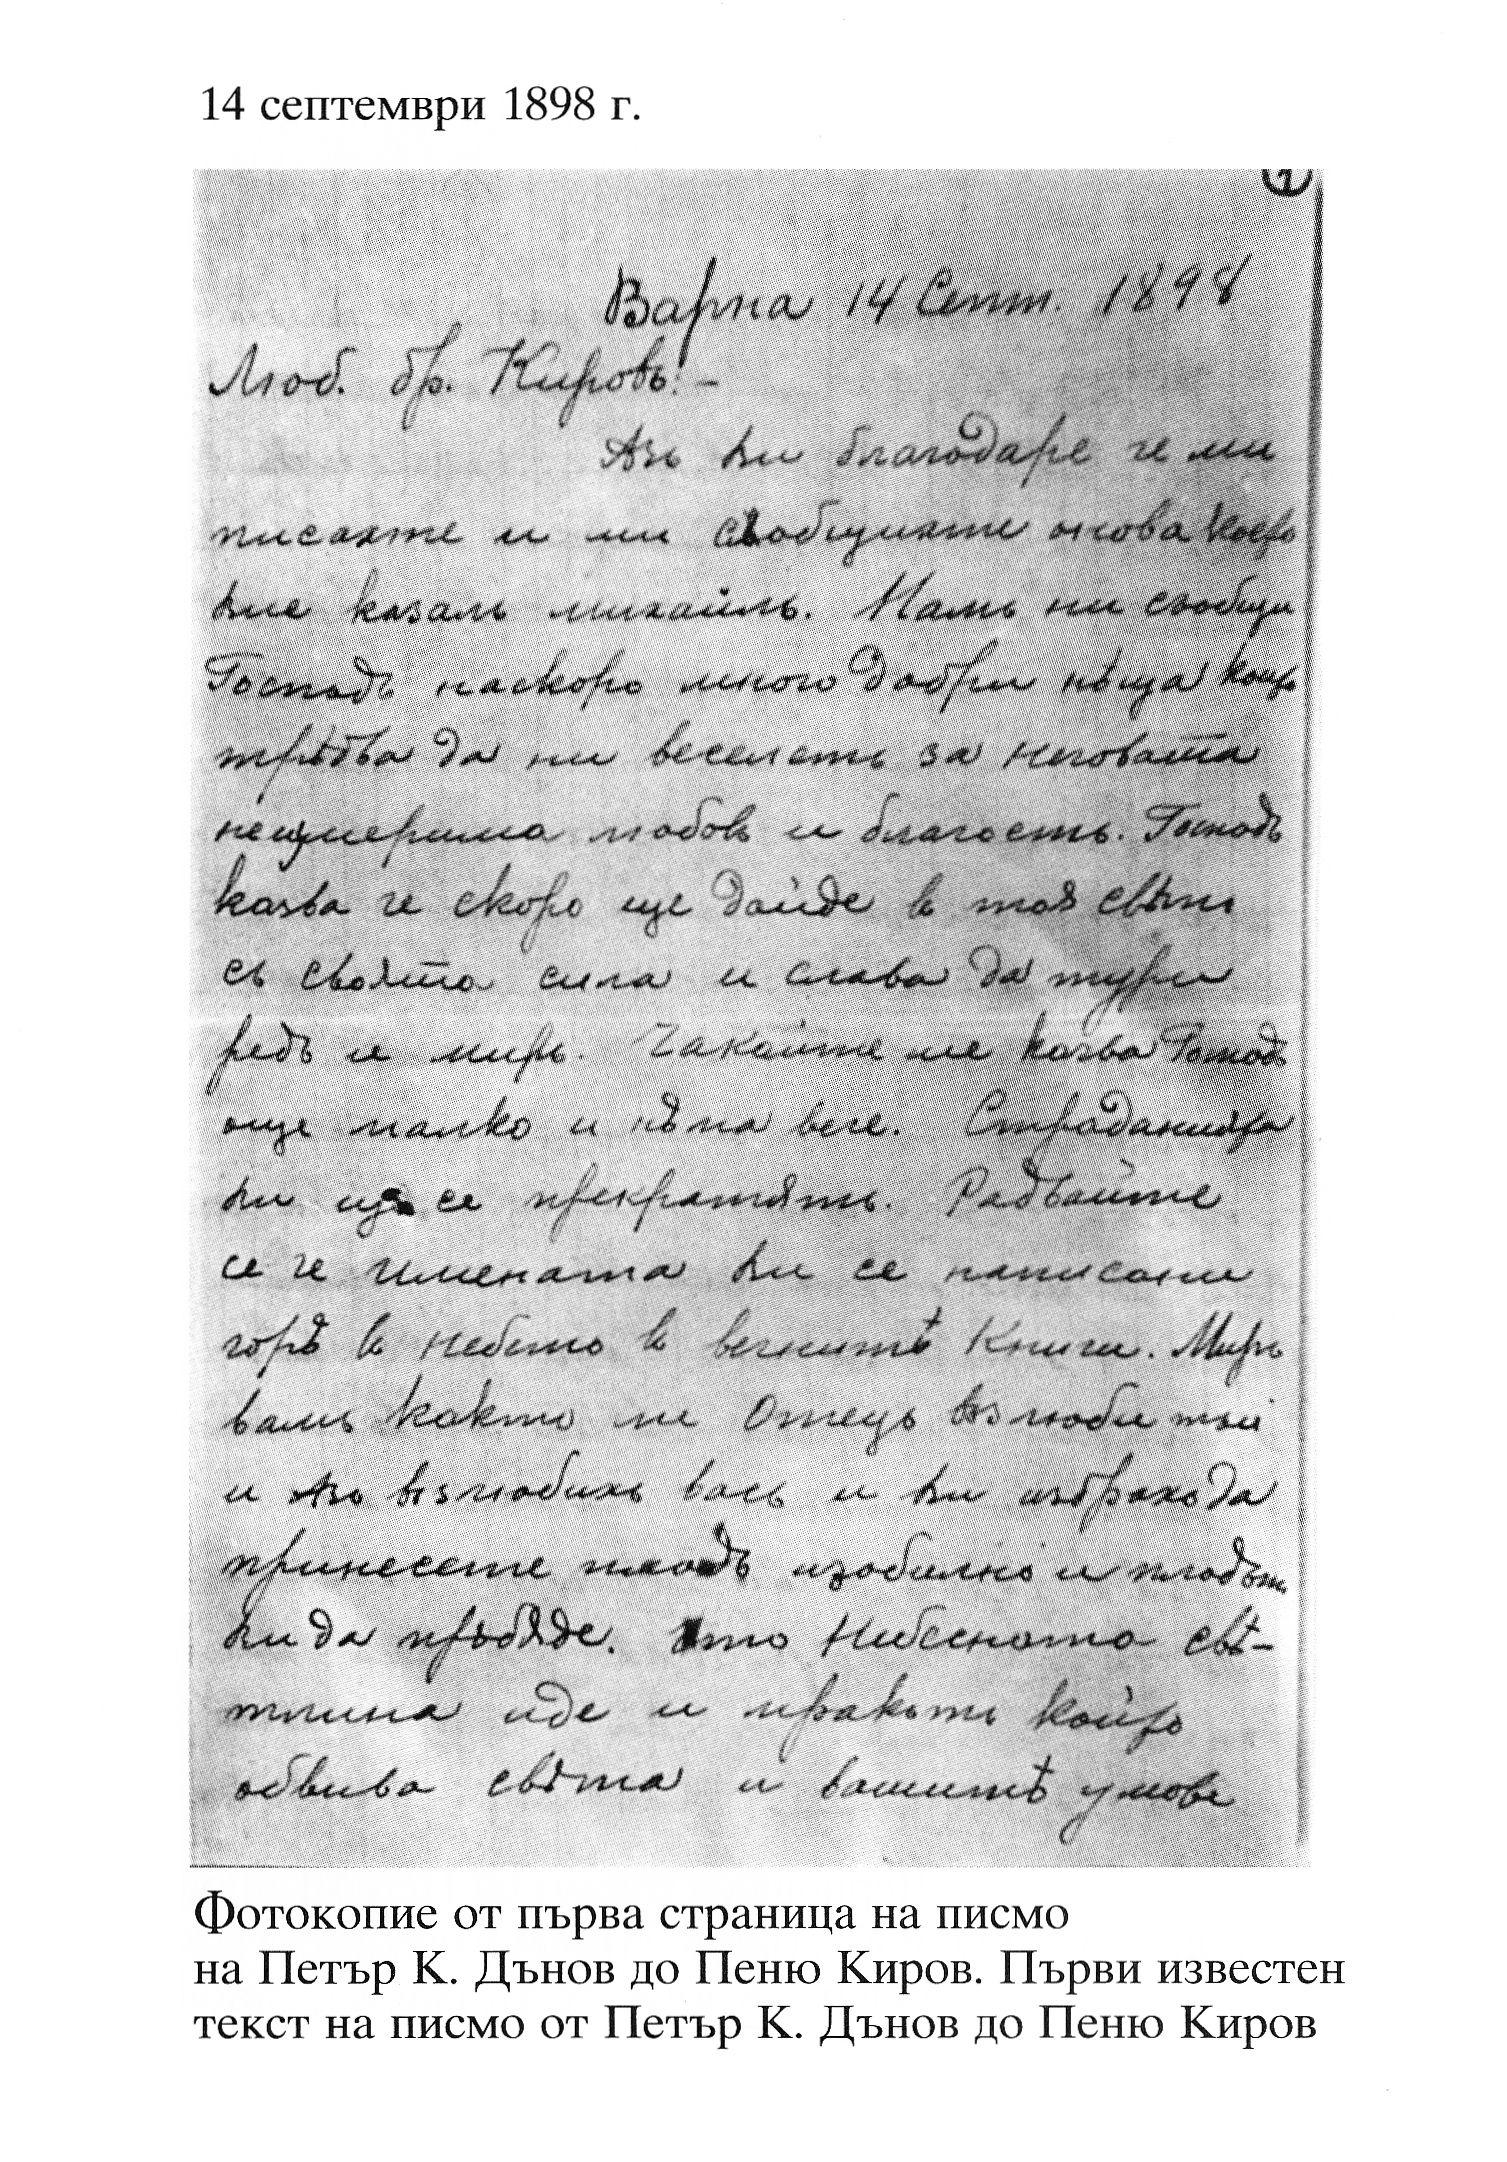 14 септември 1898 г.
1
Варна 14 Септ. 1898
Люб. бр. Кировъ! –
Азъ ви благодаре че ми
писахте и ми съобщихте онова което
вие казалъ михаилъ. Намъ ни съобщи
Господь наскоро много добри нѣща които
трѣбва да ни веселетъ за неговата
неизмерима любовь и благость. Господь
казва че скоро ще дойде в тоя свѣтъ
съ своята сила и слава да тури
редъ и миръ. Чакайте ме казва Господь
още малко и нѣма вече. Страданията
ви ще се прекратятъ. Радвайте
се че имената ви се написани
горѣ в небето в вечнитѣ Книги. Миръ
вамъ както ме Отецъ възлюби тъй
и Азъ възлюбихъ васъ и ви избрахъ да
принесете плодъ изобилно и плодътъ
ви да прѣбѫде. Ето Небесната свѣ-
тлина иде и мракътъ който
обвива свѣта и вашитѣ умове
Фотокопие от първа страница на писмо
на Петър К. Дънов до Пеню Киров. Първи известен
текст на писмо от Петър К. Дънов до Пеню Киров